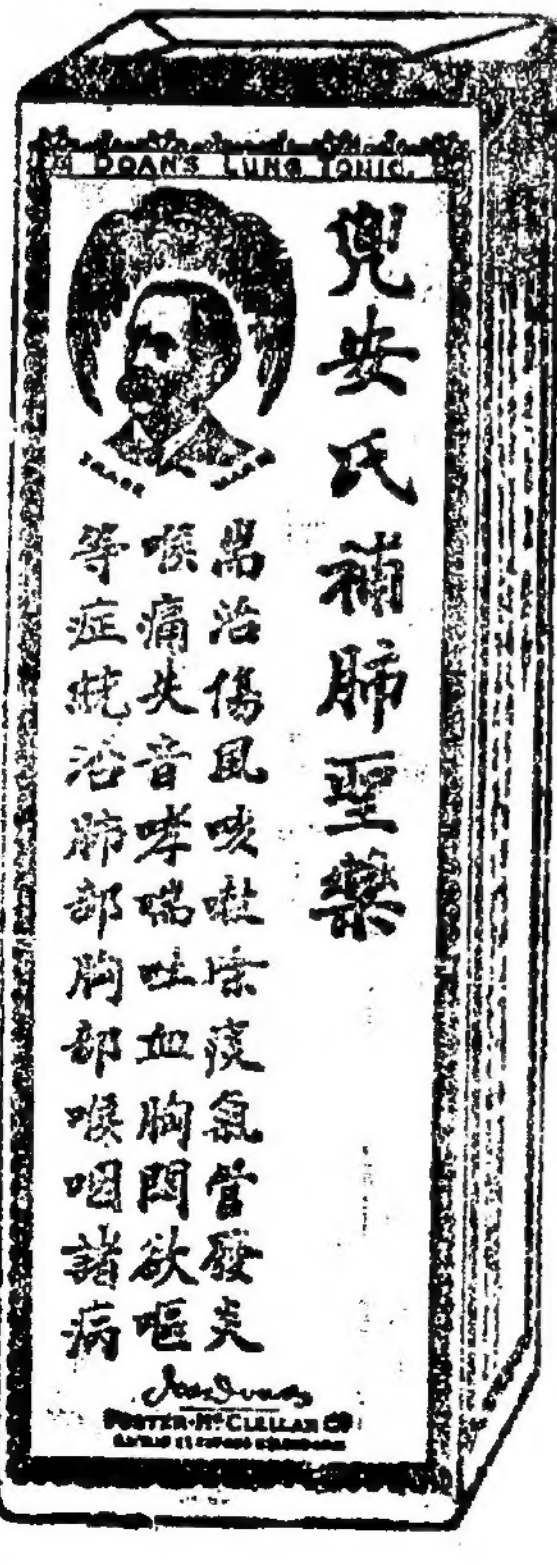 DOAN'S LUNG TONIC.
兜安氏補肺聖藥
TRADE MARK
耑治傷風咳嗽除痰氣管發炎
喉痛失音哮喘吐血胸悶欲嘔
等症統治肺部胸部喉咽諸病
FOSTER-McCLELLAN CO